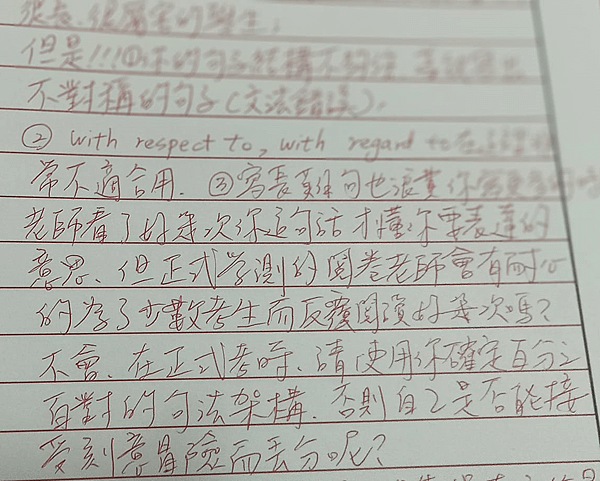 很長、很厲害的學生,
但是!!!①你的句子結構不夠
不對稱的句子(文法錯誤).
② with respect to, with regard to在
常不適合用. ③寫長難句也浪費你
老師看了好幾次你這句話才懂你要表達的
意思、但正式學測的閱卷老師會有耐心
的為了少數考生而反覆閱讀好幾次嗎?
不會、在正式考時、請使用你確定百分之
百對的句法架構、否則自己是否能接
受刻意冒險而丟分呢?